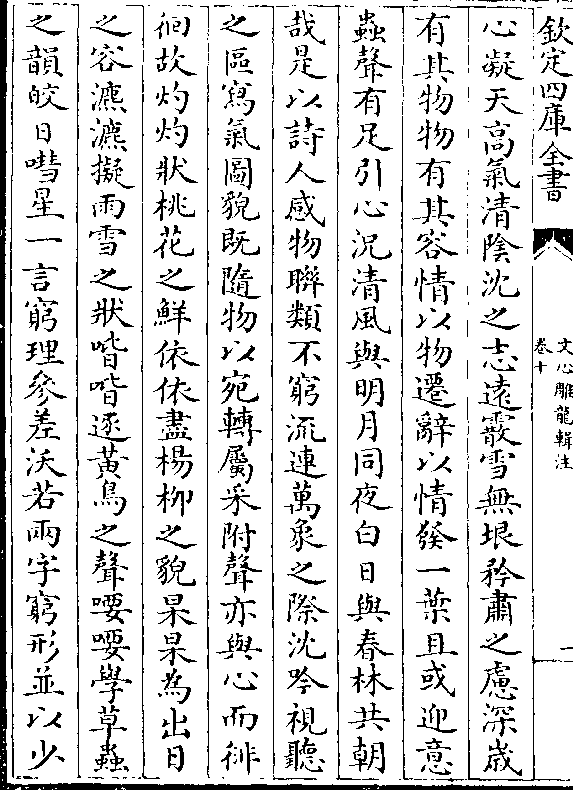 欽定四庫全書
文心雕龍輯注
卷十
一
心凝天高氣清陰沈之志遠霰雪無垠矜肅之慮深歲
有其物物有其容情以物遷辭以情發一葉且或迎意
蟲聲有足引心況清風與明月同夜白日與春林共朝
哉是以詩人感物聯類不窮流連萬象之際沈吟視聽
之區寫氣圖貌既隨物以宛轉屬采附聲亦與心而徘
徊故灼灼狀桃花之鮮依依盡楊柳之貌杲杲為出日
之容瀌瀌擬雨雪之狀喈喈逐黃鳥之聲喓喓學草蟲
之韻皎日嘒星一言窮理參差沃若兩字窮形並以少